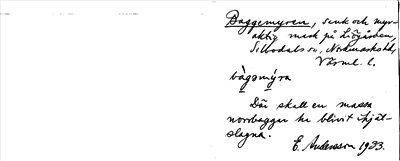 Baggemyren, sank och myr-
aktig mark på Liögården,
Silbodals sn, Nordmarks hd,
Värml. l.
bàgømýra
Där skall en massa
norrbaggar ha blivit ihjäl-
slagna.
E. Andersson 1923.